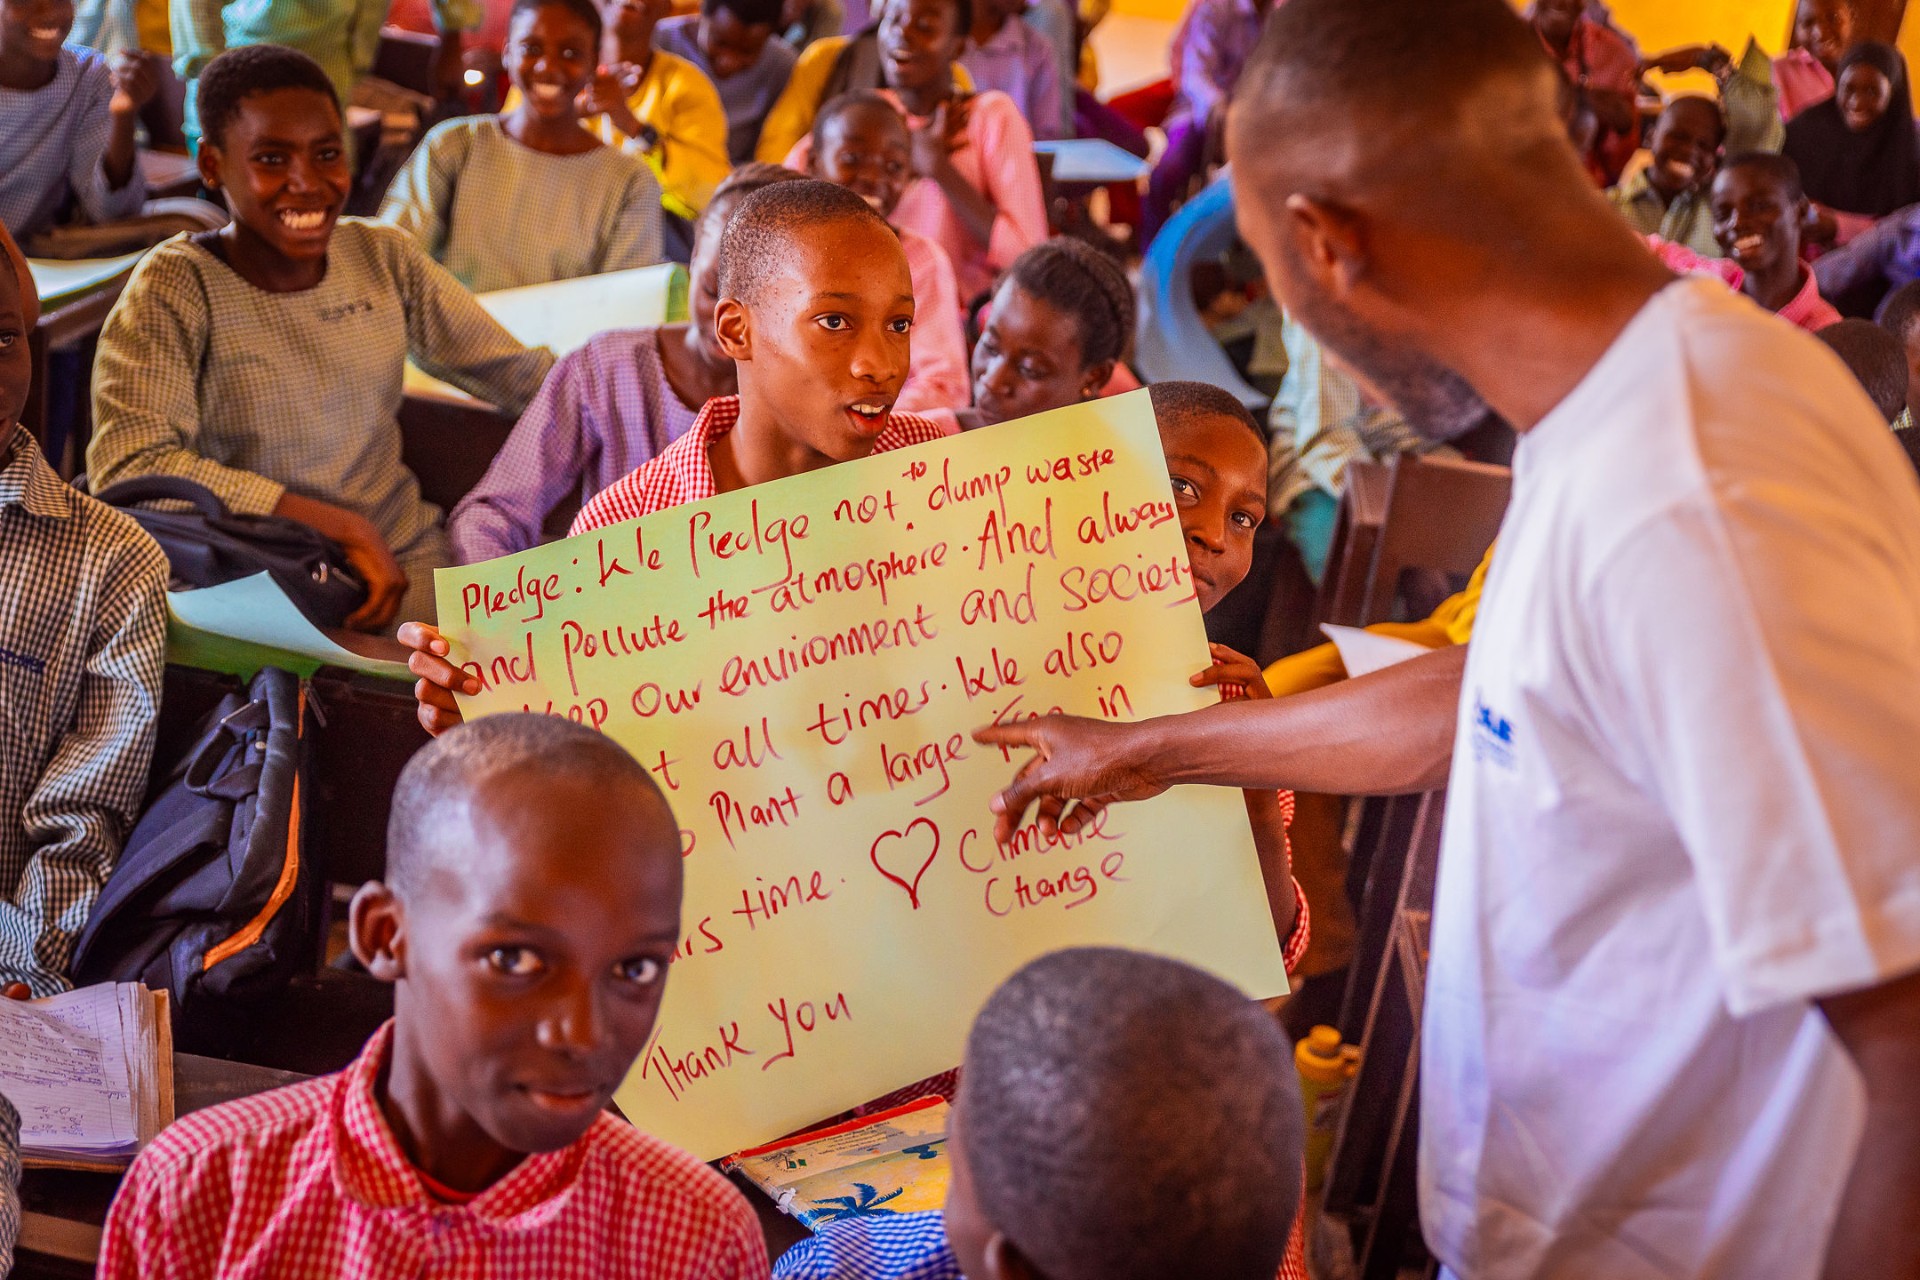 Pledge: We Pledge not to dump waste
and Pollute the atmosphere. And always
keep our environment and society
at all times. We also
Plant a large tree in
time. ♡ Climate
Change
Thank You